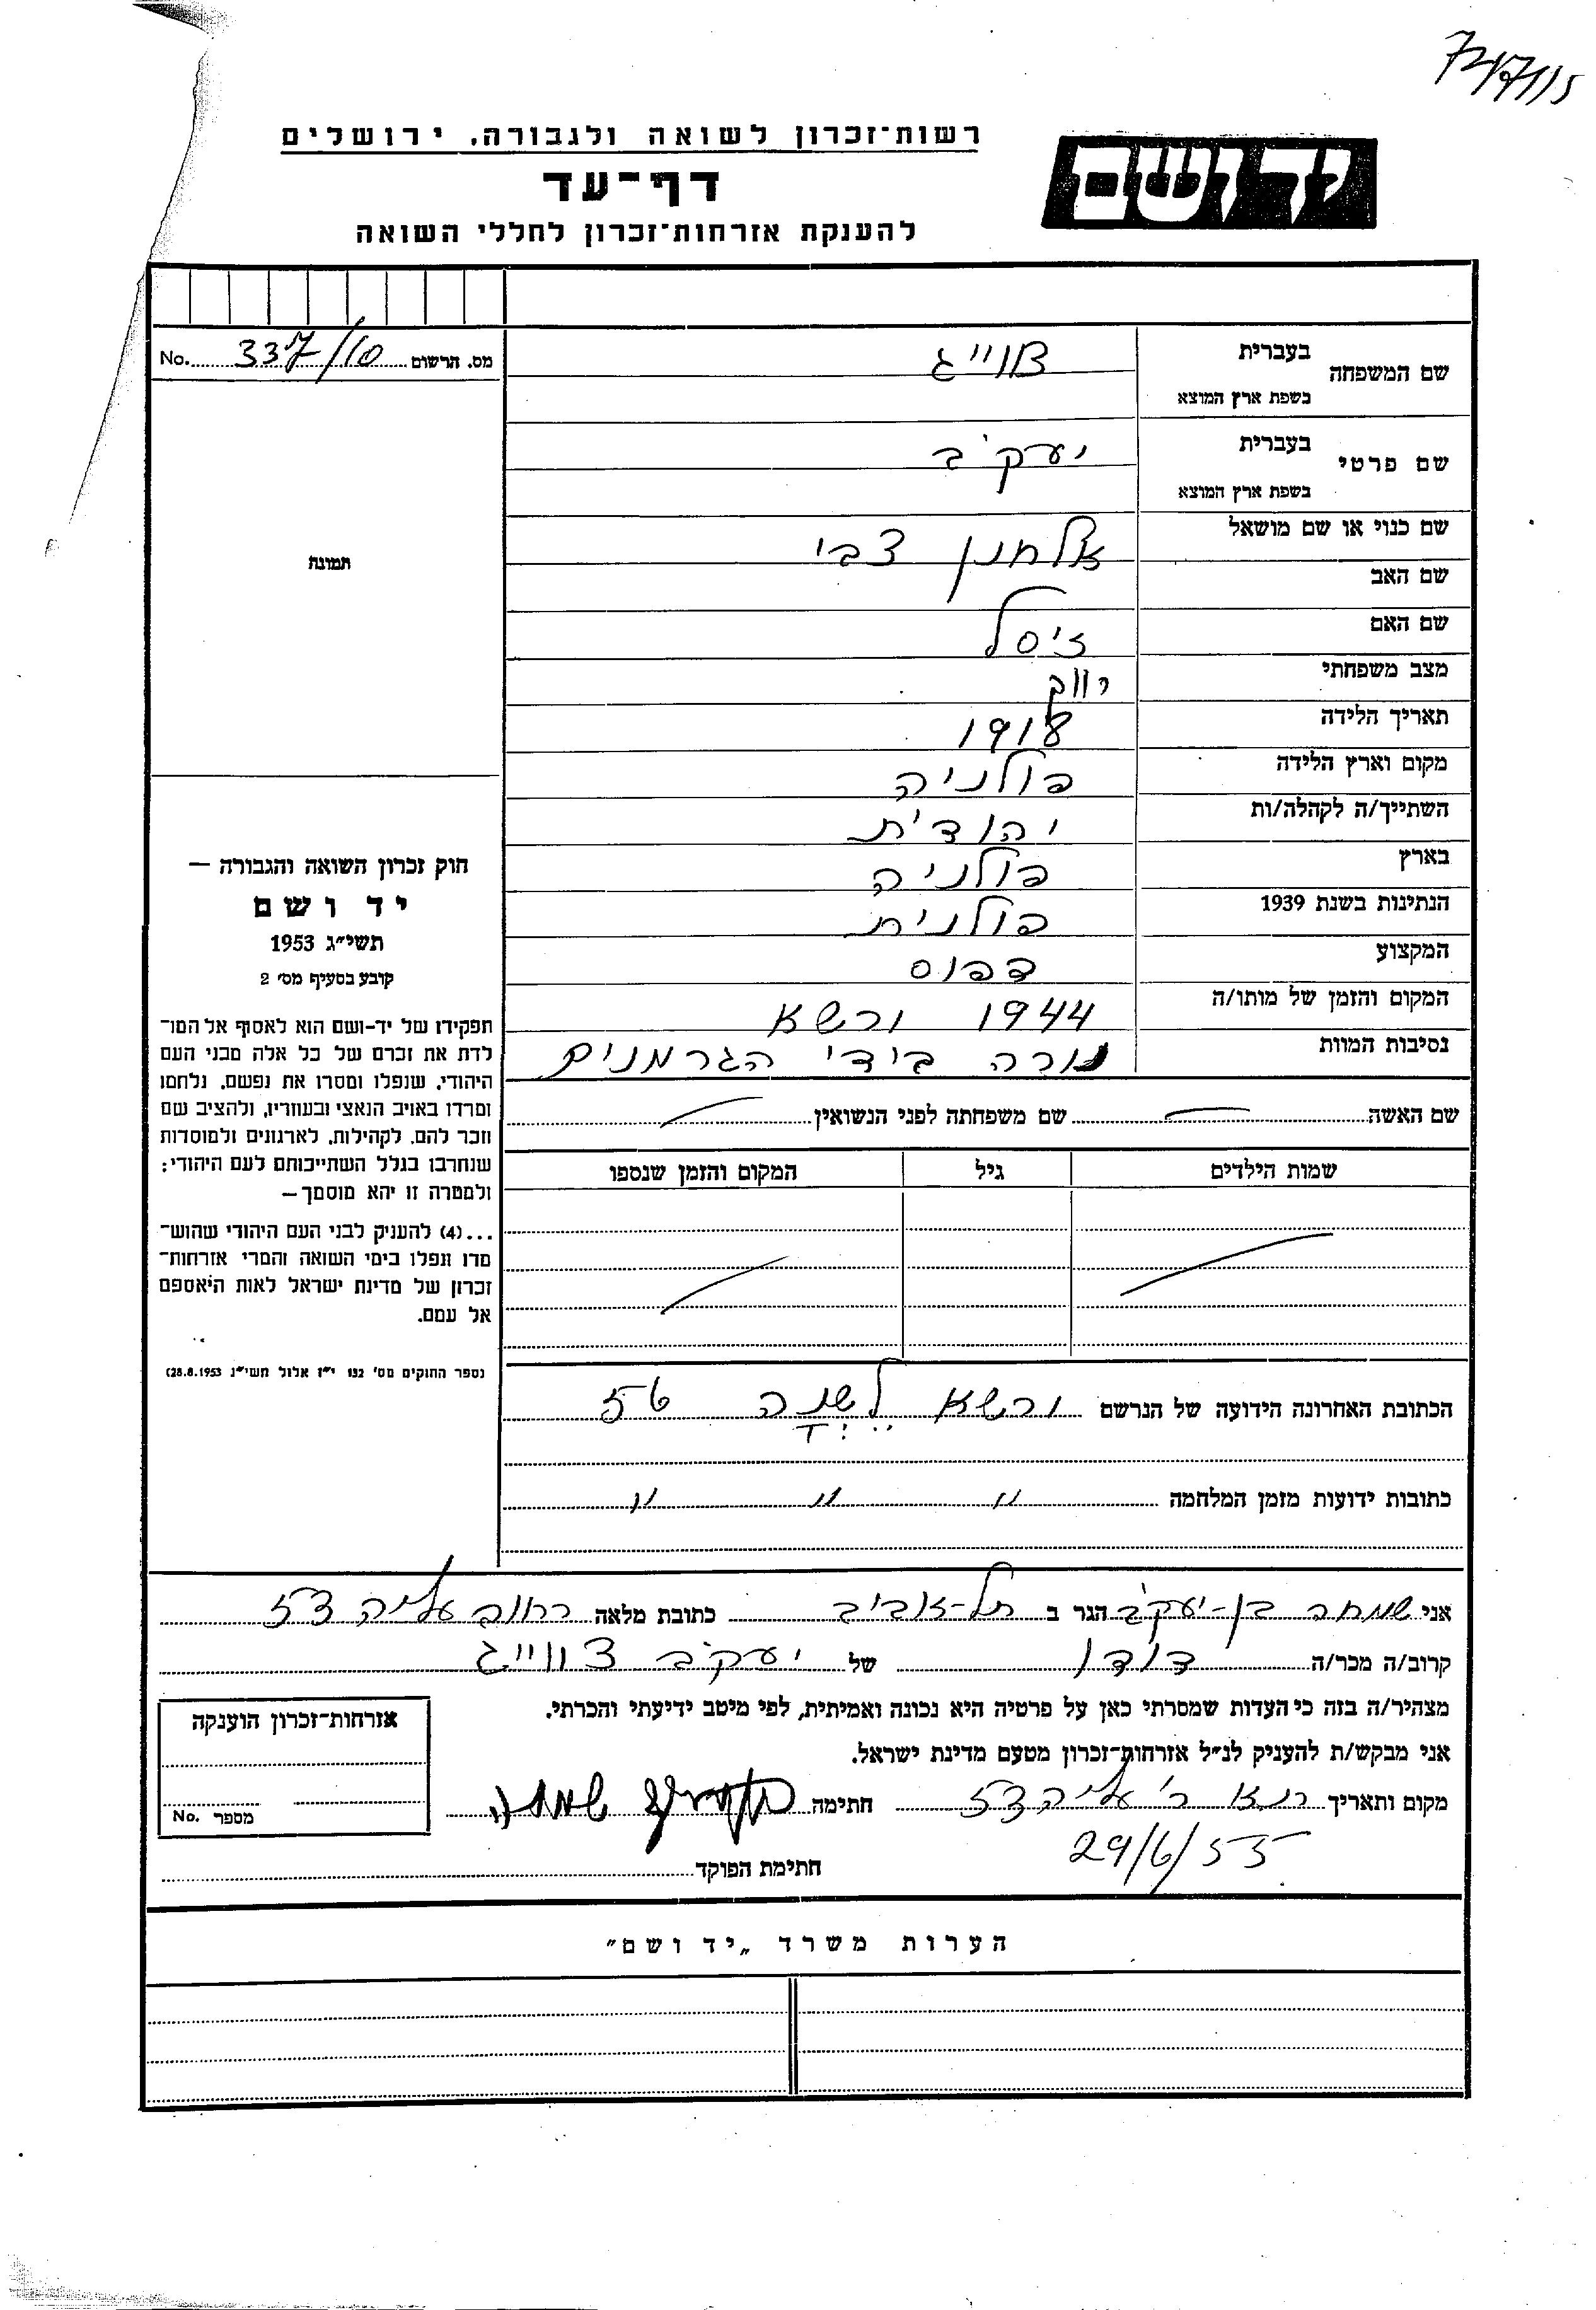 רשות־זכרון לשואה ולגבורה, ירושלים
יד ושם
דף־עד
להענקת אזרחות־זכרון לחללי השואה
מס. הרשום 337/10 No.
שם המשפחה בעברית צווייג
בשפת ארץ המוצא
שם פרטי בעברית יעקב
בשפת ארץ המוצא
שם כנוי או שם מושאל
שם האב אלחנן צבי
שם האם זיסל
מצב משפחתי רווק
תאריך הלידה 1918
מקום וארץ הלידה פולניה
השתייך/ה לקהלה/ות יהודית
בארץ פולניה
הנתינות בשנת 1939 פולנית
המקצוע דפוס
המקום והזמן של מותו/ה 1944 ורשא
נסיבות המוות נורה בידי הגרמנים
תמונה
חוק זכרון השואה והגבורה —
יד ושם
תשי״ג 1953
קובע בסעיף מס׳ 2
תפקידו של יד-ושם הוא לאסוף אל המו־
לדת את זכרם של כל אלה מבני העם
היהודי, שנפלו ומסרו את נפשם, נלחמו
ומרדו באויב הנאצי ובעוזריו, ולהציב שם
וזכר להם, לקהילות, לארגונים ולמוסדות
שנחרבו בגלל השתייכותם לעם היהודי;
ולמטרה זו יהא מוסמך—
...(4) להעניק לבני העם היהודי שהוש־
מדו ונפלו בימי השואה והמרי אזרחות־
זכרון של מדינת ישראל לאות היאספם
אל עמם.
(ספר החוקים מס׳ 132 י״ז אלול תשי״ג 28.8.1953)
שם האשה שם משפחתה לפני הנשואין
שמות הילדים גיל המקום והזמן שנספו
הכתובת האחרונה הידועה של הנרשם ורשא 56
כתובות ידועות מזמן המלחמה " " "
אני שמחה בן-יעקב הגר ב תל-אביב כתובת מלאה רחוב עליה 53
קרוב/ה מכר/ה דודו של יעקב צווייג
מצהיר/ה בזה כי העדות שמסרתי כאן על פרטיה היא נכונה ואמיתית, לפי מיטב ידיעתי והכרתי.
אני מבקש/ת להעניק לנ״ל אזרחות־זכרון מטעם מדינת ישראל.
מקום ותאריך ר׳ עליה 53 חתימה
29/6/55
חתימת הפוקד
אזרחות־זכרון הוענקה
מספר No.
הערות משרד „יד ושם״